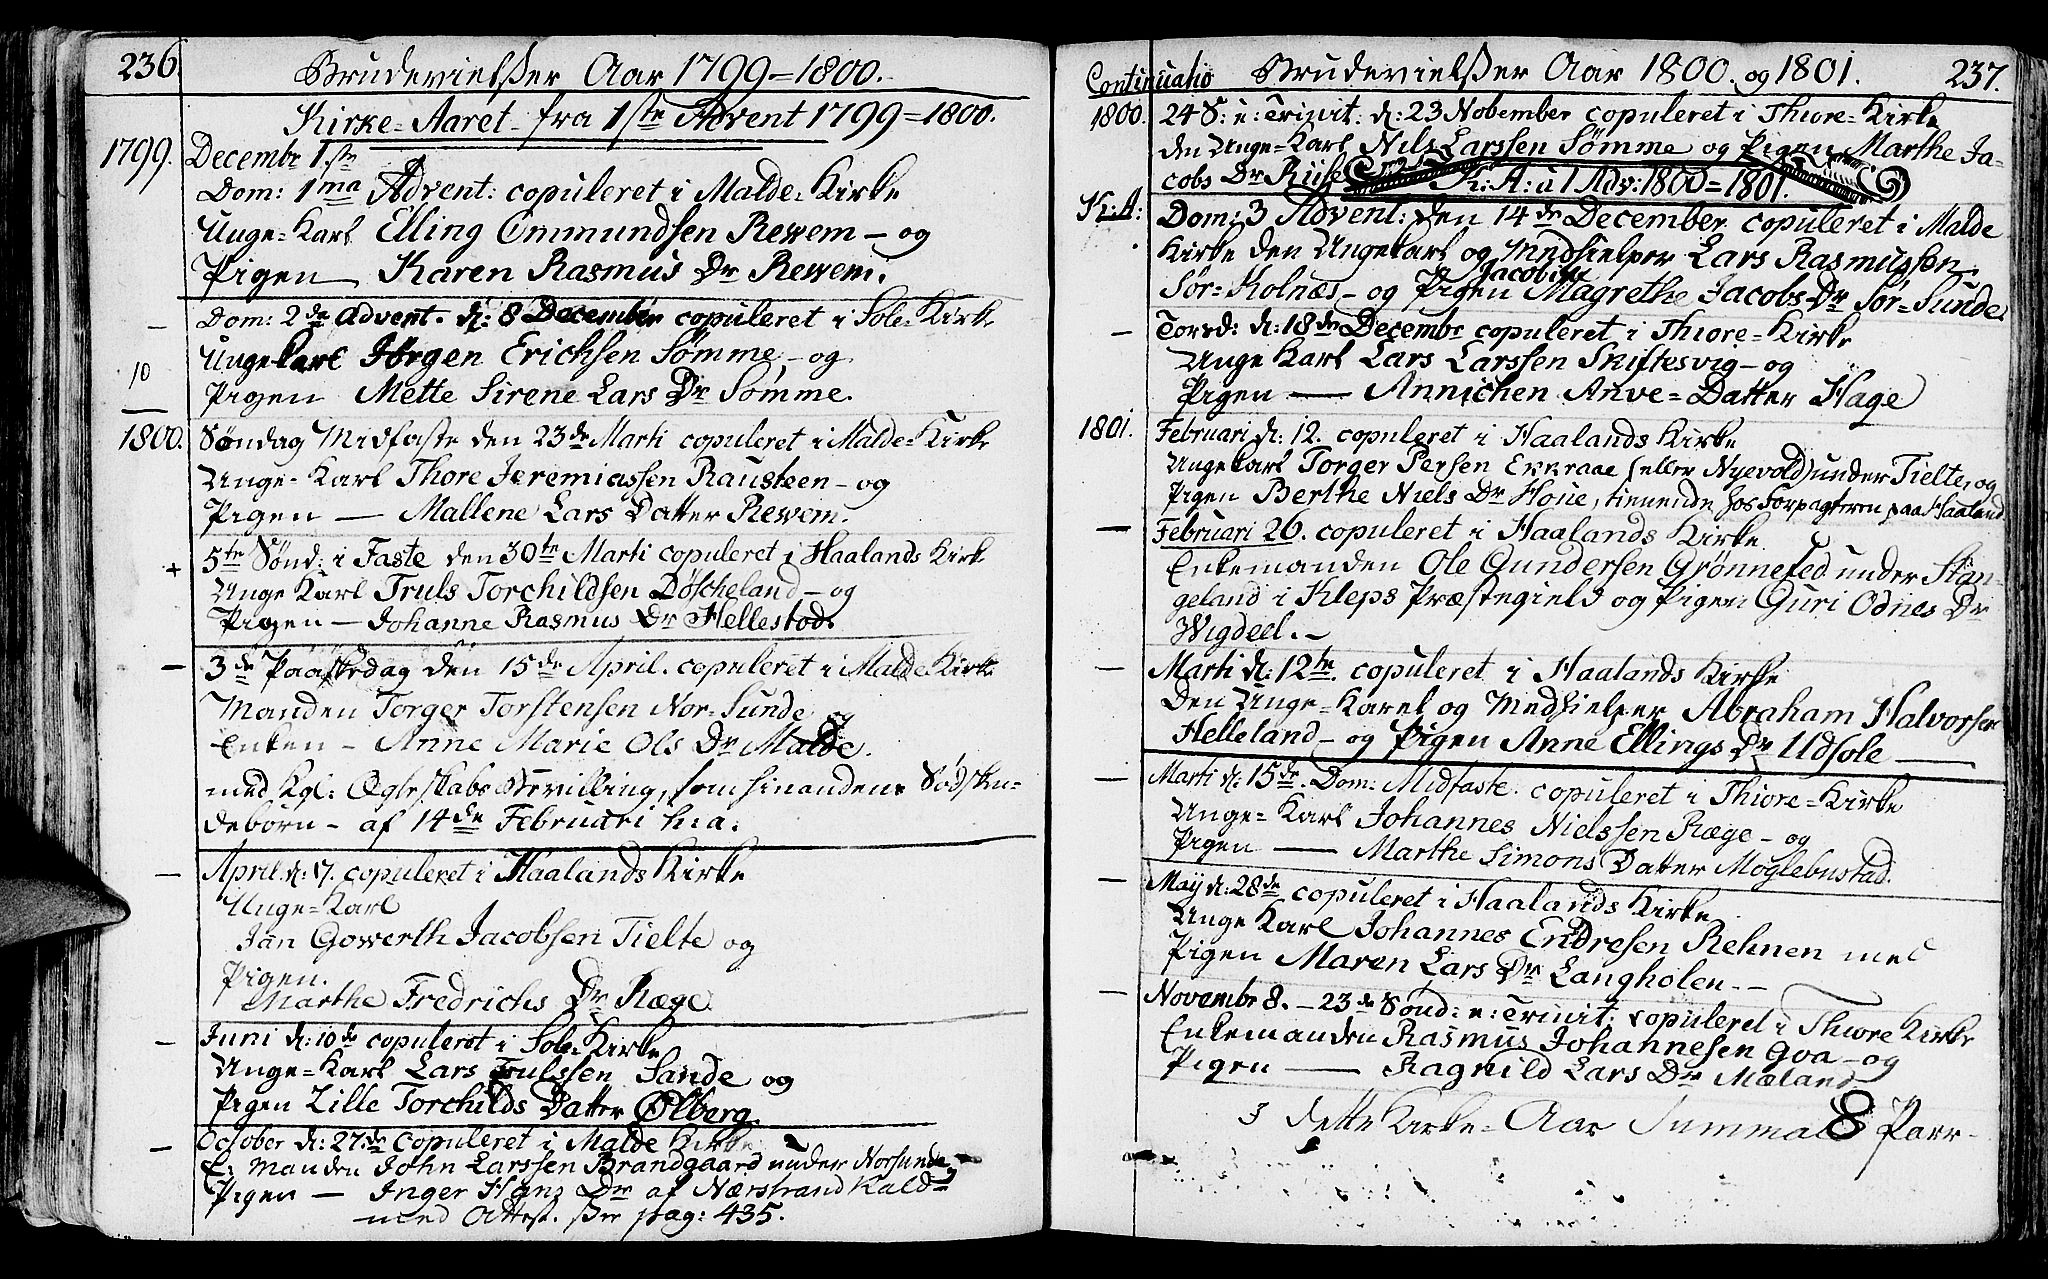 236.
Brudevielser Aar 1799=1800.
Kirke=Aaret fra 1ste Advent 1799=1800.
1799. Decembr 1ste
Dom: 1ma Advent: copuleret i Malde=Kirke
Unge=Karl Elling Ommundsen Rewem – og
Pigen — Karen Rasmus Dr Rewem.
— Dom: 2de Advent. d: 8 December copuleret i Sole=Kirke
Ungekarl Jørgen Erichsen Sømme, – og
10 Pigen Mette Sirene Lars Dr Sømme.
1800. Søndag Midfaste den 23de Marti copuleret i Malde=Kirke
Unge=Karl Thore Jeremiassen Rausteen – og
Pigen — Mallene Lars Datter Rewem.
+ 5te Sønd: i Faste den 30te Marti copuleret i Haalands Kirke
Unge Karl Truls Torchildsen Døscheland – og
Pigen — Johanne Rasmus Dr Hellestød.
— 3de Paaskedag den 15de April. copuleret i Malde Kirke
Manden Torger Torstensen Nor=Sunde og
Enken – Anne Marie Ols Dr Malde.
med Kgl: Ægteskabs Bevilling, som hinandens Sødsken=
debørn – af 14de Februari h: a:
— April d: 17. copuleret i Haalands Kirke
Unge=Karl
Jan Gowerth Jacobsen Tielte og
Pigen.
Marthe Fredrichs Dr Ræge
— Juni d: 10de copuleret i Sole=Kirke
Unge=Karl Lars Trulssen Sande og
Pigen Lille Torchilds Datter Ølberg.
— October d: 27de copuleret i Malde Kirke
E: Manden John Larssen Brandgaard under Norsunde og
Pigen — Inger Hans Dr af Nærstrand Kald=
med Attest. see pag: 435.
Continuatio Brudevielser Aar 1800. og 1801. 237.
1800. 24 S: e: Trinit: d: 23 November copuleret i Thiore=Kirke
den Unge=Karl Nils Larssen Sømme og Pigen Marthe Ja=
cobs Dr Risse
K: A: a 1 Adv: 1800=1801.
K: A: Dom: 3 Advent: den 14de December copuleret i Malde
Kirke den Ungekarl og Medhielper Lars Rasmussen
Jacobine
Sør=Kolnæs – og Pigen Magrethe Jacobs Dr Sør=Sunde.
— Torsd: d: 18de Decembr copuleret i Thiore=Kirke
Unge Karl Lars Larssen Skiftesvig – og
Pigen — Annichen Anve=Datter Hage
1801. Februari d: 12. copuleret i Haalands Kirke
Ungekarl Torger Persen (eller Nyevold) under Tielte, og
Pigen Berthe Niels Dr Houe, tienende hos Forpagteren paa Haaland
— Februari 26. copuleret i Haalands Kirke
Enkemanden Ole Gundersen Grønnefed under Stan=
geland i Kleps Præstegield og Pigen Guri Odnes Dr
Wigdeel. –
— Marti d: 12te. copuleret i Haalands Kirke
den Unge=Karl og Medhielper Abraham Halvorsen
Helleland – og Pigen Anne Ellings Dr Udsole —
— Marti d: 15de. Dom: Midfaste. copuleret i Thiore=Kirke
Unge=Karl Johannes Nielssen Ræge – og
Pigen — Marthe Simons Datter Møglebustad.
— Maij d: 28de copuleret i Haalands Kirke
Unge Karl Johannes Endresen Rehnen med
Pigen Maren Lars Dr Langholen. –
— Novembr 8. – 23de Sønd: e: Trinit: copuleret i Thiore Kirke
Enkemanden Rasmus Johannesen Goa – og
Pigen — Ragnild Lars Dr Mæland
I dette Kirke=Aar Summa 8 Parr –